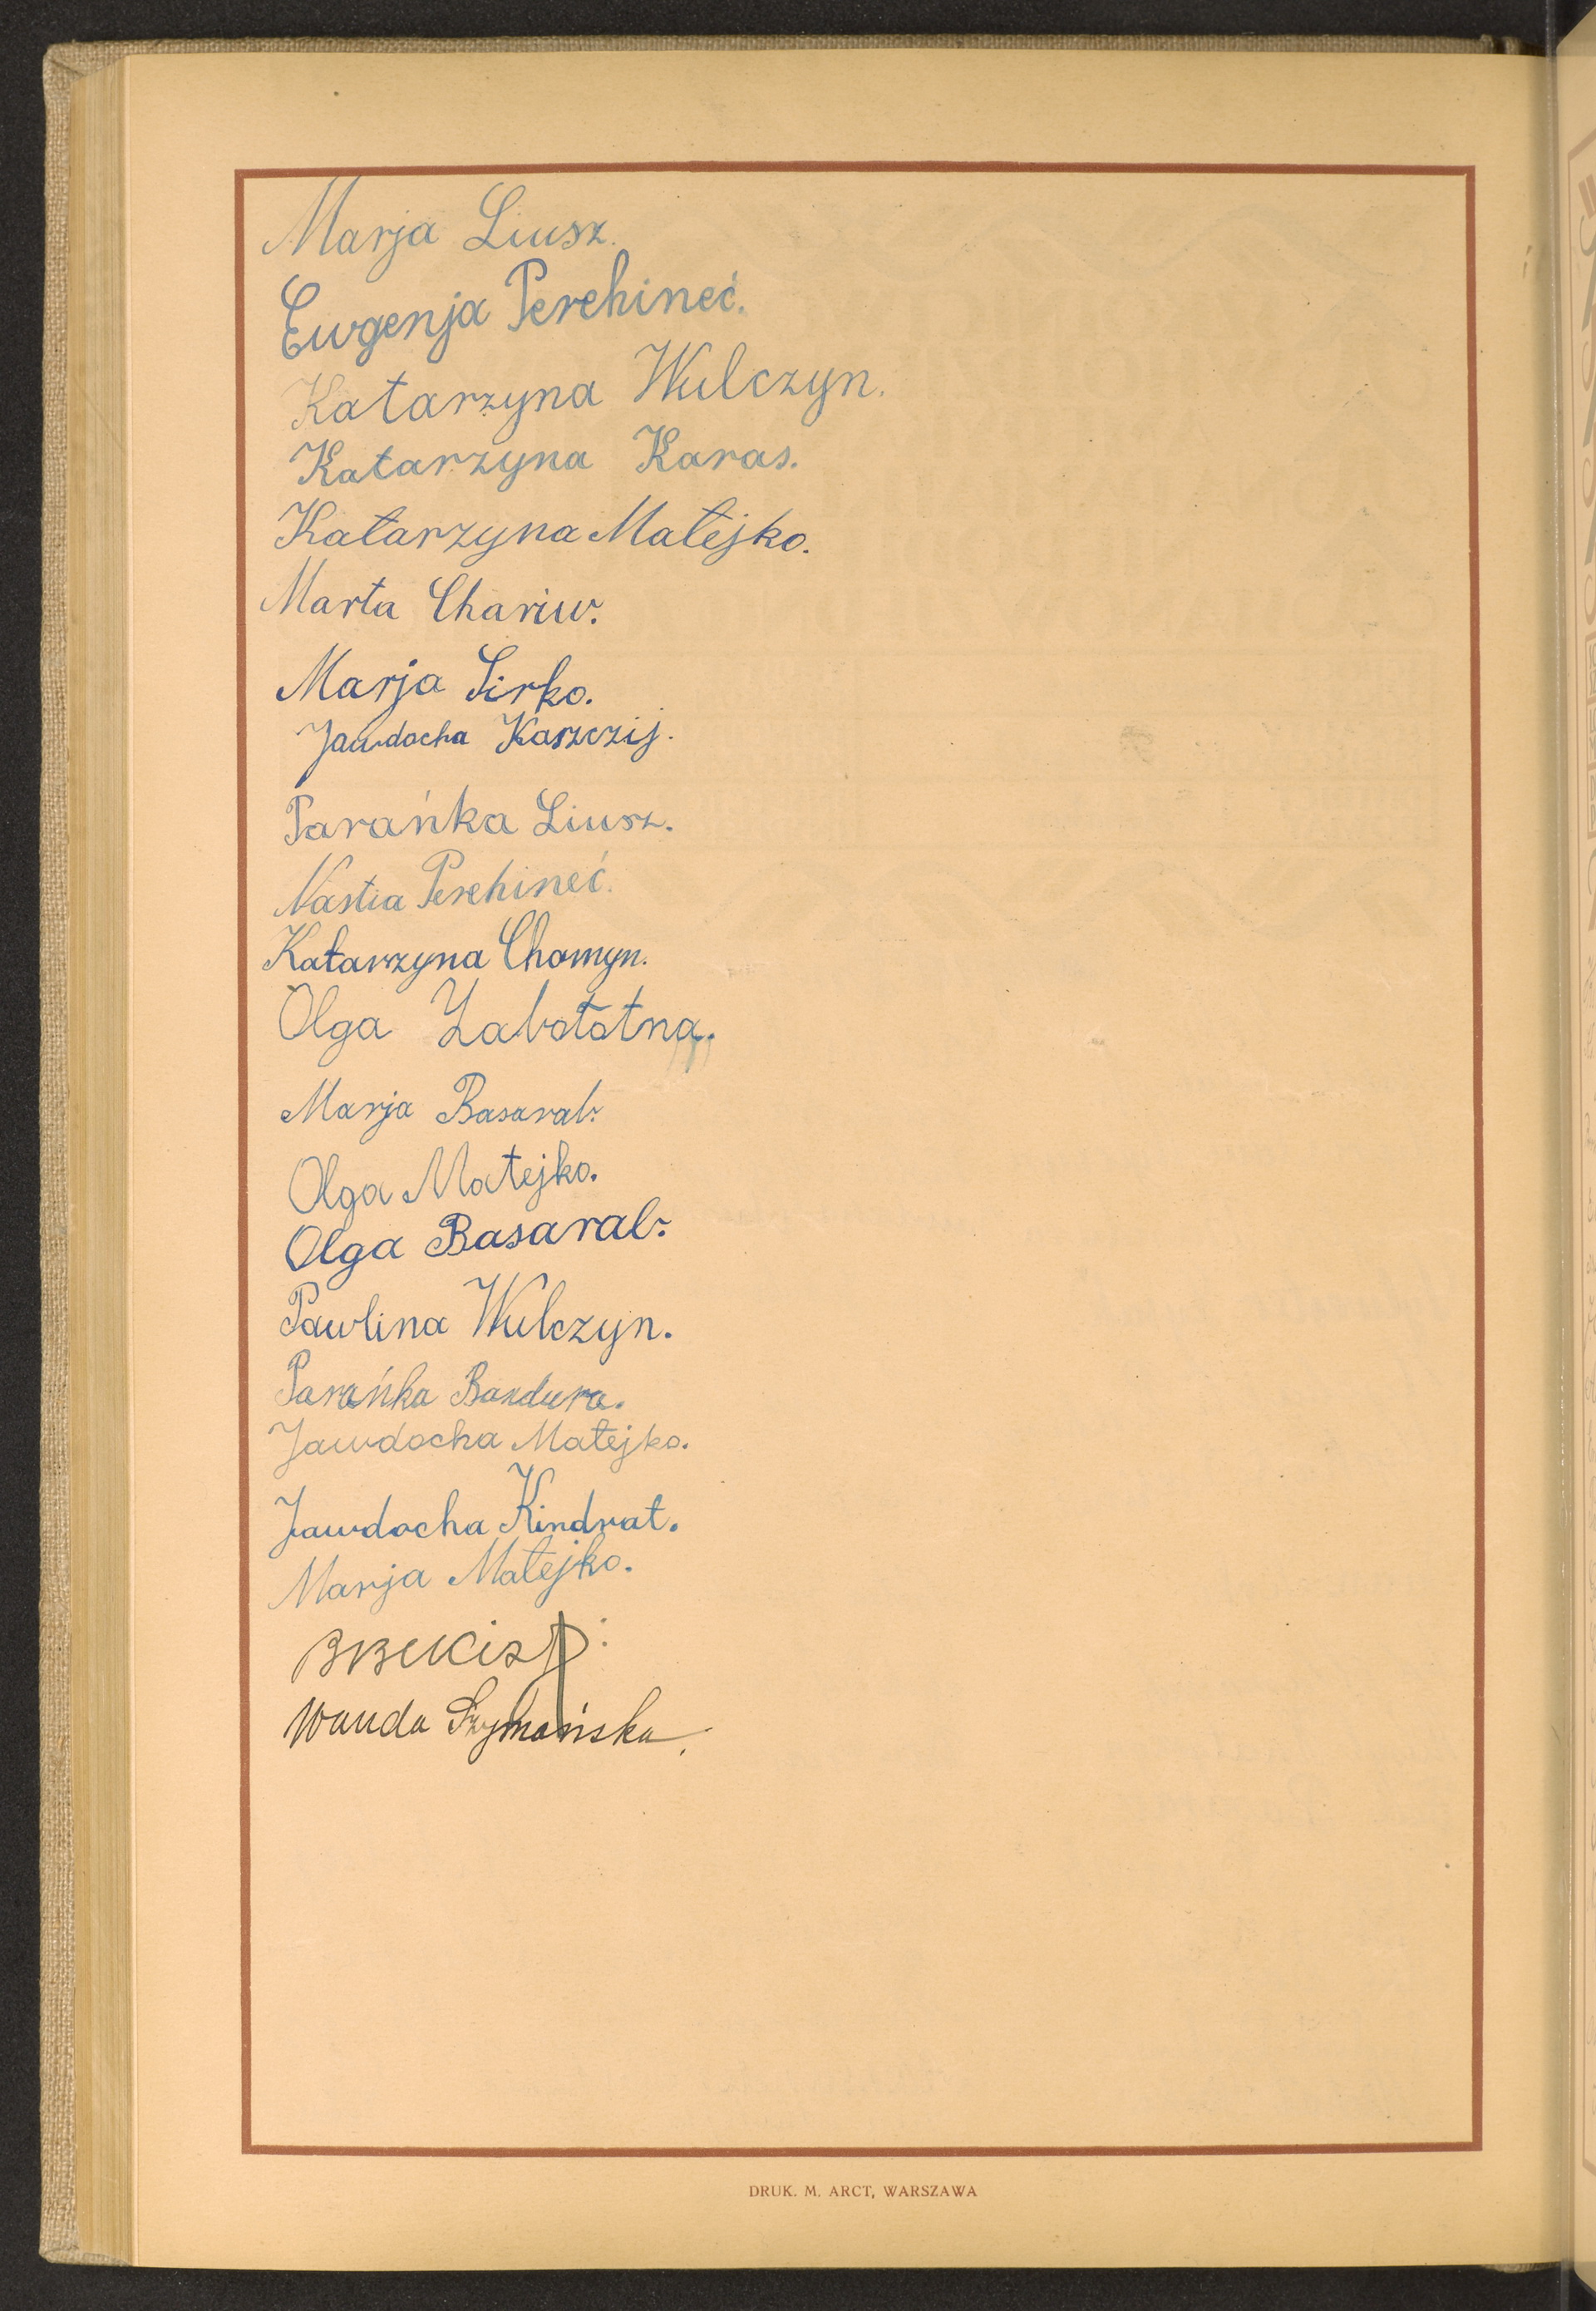 Marja Liusz.
Eugenja Perehineć.
Katarzyna Wulczyn.
Katarzyna Karas.
Katarzyna Matejko.
Marta Chariw.
Marja Sirko.
Jawdocha Kaszczij.
Parańka Liusz.
Nastia Perehineć.
Katarzyna Chomyn.
Olga Zabołotna.
Marja Basarab.
Olga Matejko.
Olga Basarab.
Pawlina Wulczyn.
Parańka Bandura.
Jawdocha Matejko.
Jawdocha Kindrat.
Marja Matejko.
Wanda Szymańska.
DRUK. M. ARCT, WARSZAWA